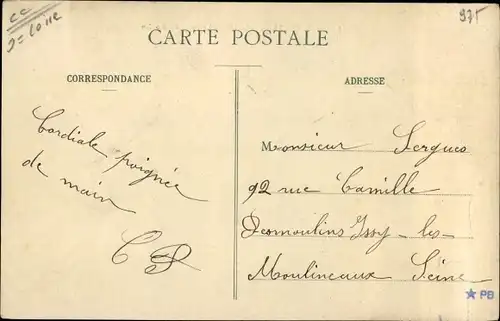 CC
J=Loire
935
CARTE POSTALE
CORRESPONDANCE
ADRESSE
Cordiale poignée
de main
Monsieur Sergues
92 rue Camille
Desmoulins Issy-les
Moulineaux Seine
PB